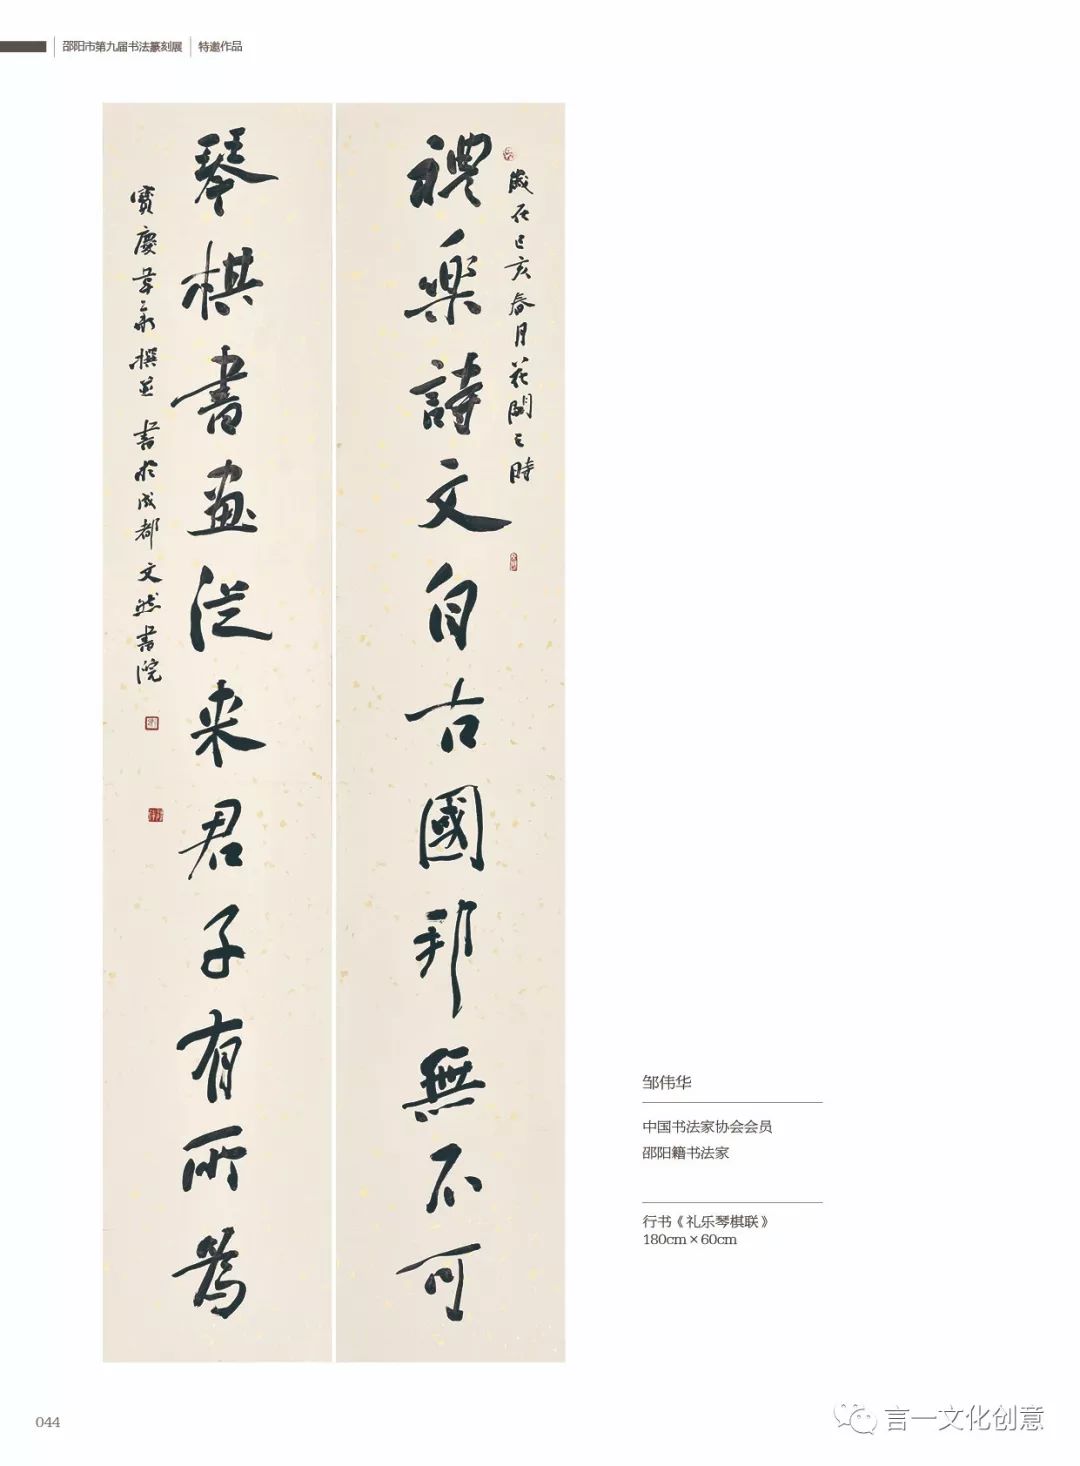 邵阳市第九届书法篆刻展 特邀作品
歲在己亥春月花開之時
禮樂詩文自古國邦無不可
琴棋書畫從来君子有所為
寶慶 撰並書於成都文然書院
邹伟华
中国书法家协会会员
邵阳籍书法家
行书《礼乐琴棋联》
180cm×60cm
044
言一文化创意